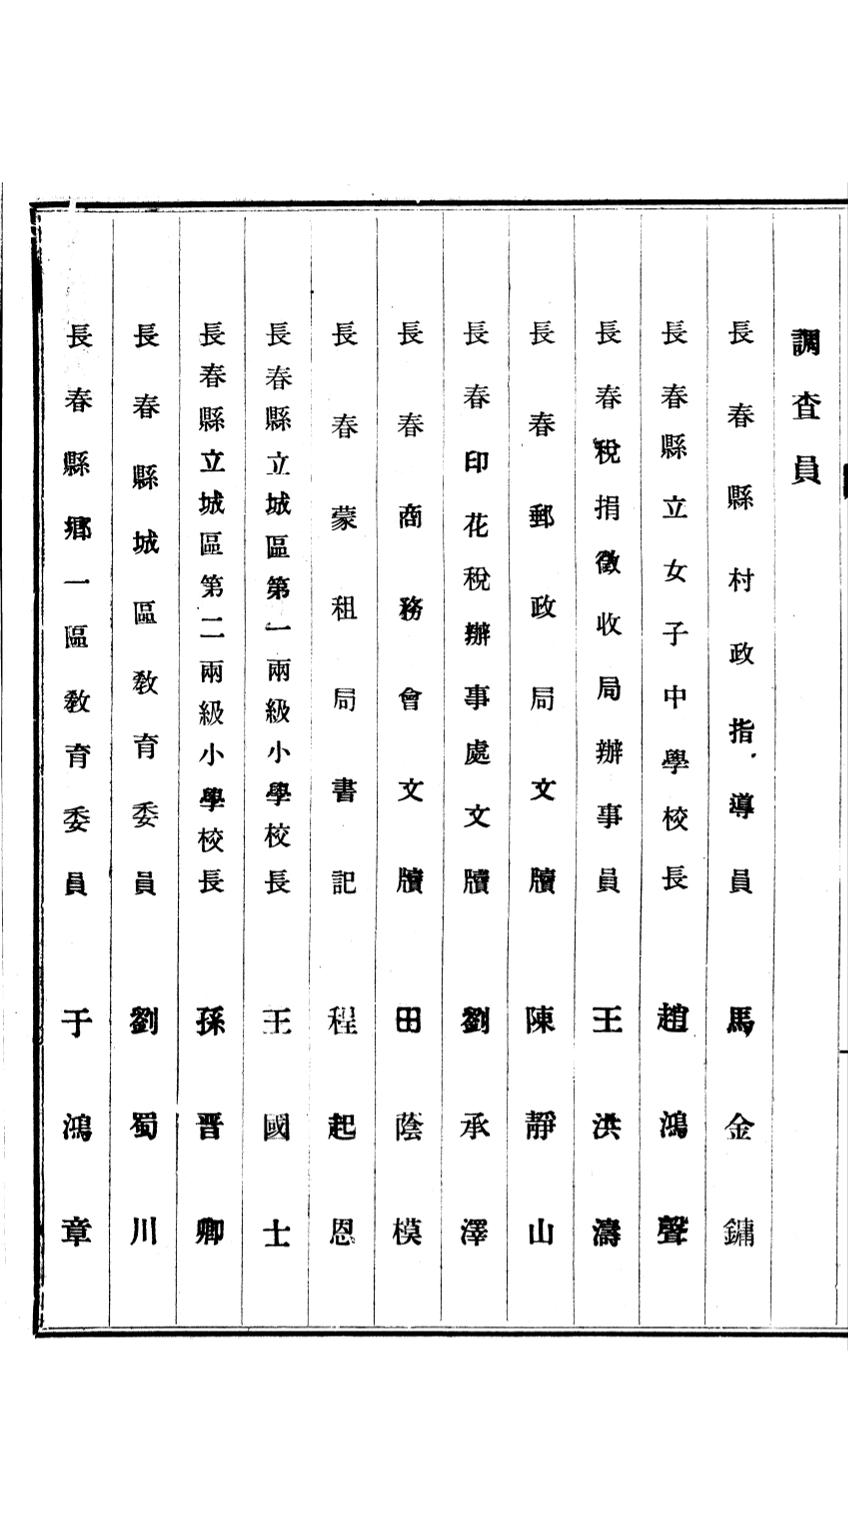 調查員
長春縣村政指導員　馬金鏞
長春縣立女子中學校長　趙鴻聲
長春稅捐徵收局辦事員　王洪濤
長春郵政局文牘　陳靜山
長春印花稅辦事處文牘　劉承澤
長春商務會文牘　田蔭模
長春蒙租局書記　程起恩
長春縣立城區第一兩級小學校長　王國士
長春縣立城區第二兩級小學校長　孫晋卿
長春縣城區教育委員　劉蜀川
長春縣鄉一區教育委員　于鴻章